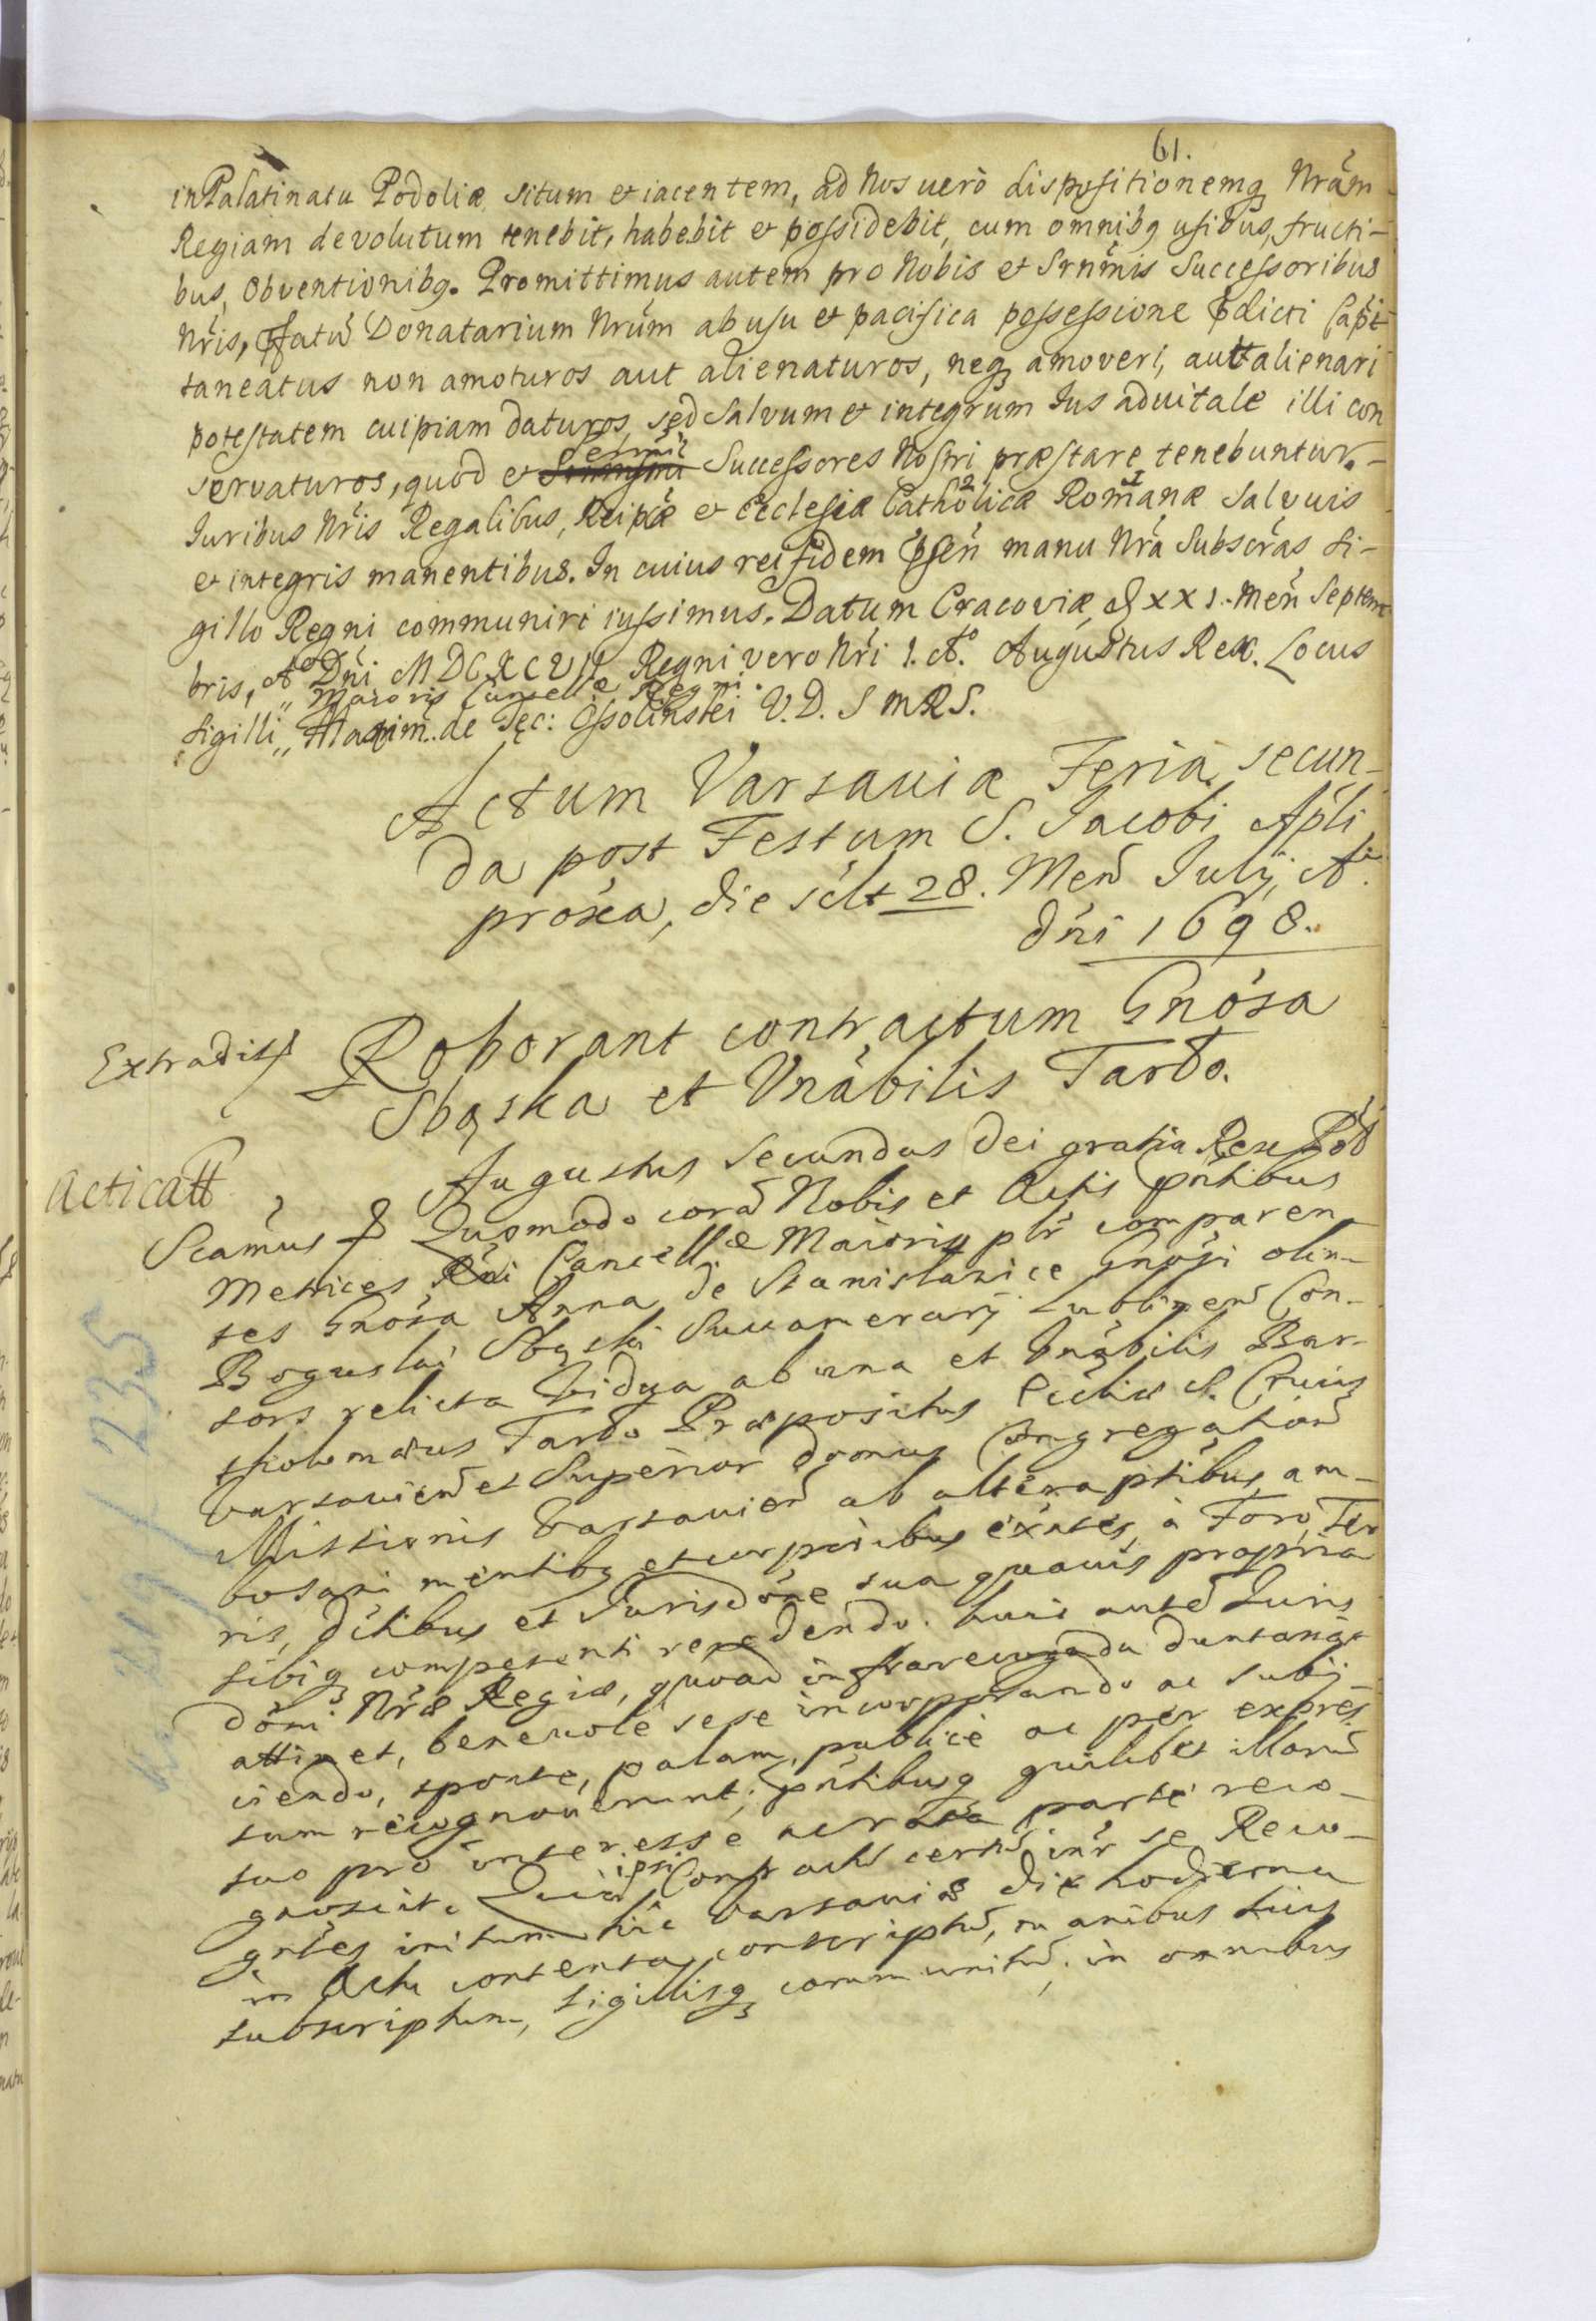 61.
in Palatinatu Podoliæ situm et iacentem, ad Nos uerò dispositionemq Nrãm
Regiam devolutum tenebit, habebit et possidebit, cum omnibq usibus, fructi-
bus, Obventionibq. Promittimus autem pro Nobis et Srñmis Successoribus
Nris, Donatarium Nrum ab usu et pacifica possessione dicti Capi-
taneatus non amoturos aut alienaturos, neq amoveri, aut alienari
potestatem cuipiam daturos, sed Salvum et integrum Ius aduitale illi con
servaturos, quod et Successores Nostri præstare tenebuntur.
Iuribus Nris Regalibus, Reipcæ et Ecclesiæ Catholicæ Romanæ salvuis
et integris manentibus. In cuius rei fidem psen manu Nrã Subscras si-
gillo Regni communiri iussimus. Datum Cracoviæ, d XXI. Men Septem
bris, Ao Dni MDCXCVII Regni vero Nri I. Ao. Augustus Rex. Locus
Maioris Cancellæ Regni.
Sigilli,, Maxim. de Tęc: Ossolinski V.D. S M R S.
Actum Varsaviæ Feria secun-
da post Festum S. Iacobi Apli
proxa, die sclt 28. Men Iulij Ao.
dni 1698.
Extradit
Roborant contractum Gnosa
Sbąska et Vnabilis Tardo.
Acticatt
Augustus Secundus Dei gratia Rex Pol
Scamus Quomodo corã Nobis et Actis pntibus
Metrices Rni Cancellæ Maioris plr comparen
tes Gnosa Anna de Stanislavice Gnosi olim
Boguslai Sbąski Succamerarij Lublinen Con-
sors relicta Vidua ab una et Vnabilis Bar-
tholomæus Tardo Præpositus Ecclæ S. Crucis
Varsavien et Superior domus Congregation
Missionis Varsavien ab altera ptibus am-
bo sani mentibq et corporibus exntes, à Foro, Ter
ris, dctibus et Iurisdone sua quavis propria
sibiq competenti recedendo. huic autẽ Iuris
doni Nræ Regiæ, quoad infrarecogda duntaxat
attinet, benevole sese incorporando ac subij-
ciendo, sponte, palam, publice ac per expres
sum recognoverunt; pntibusq quilibet illorũ
suo pro interesse ac rata parte reco-
gnoscit. Quia ipsi Contractũ certũ intr se Reco-
gntes initum hic Varsaviæ die hodierna
in Actu contenta conscriptũ, manibus suis
subscriptum, sigillisq communitũ, in omnibus